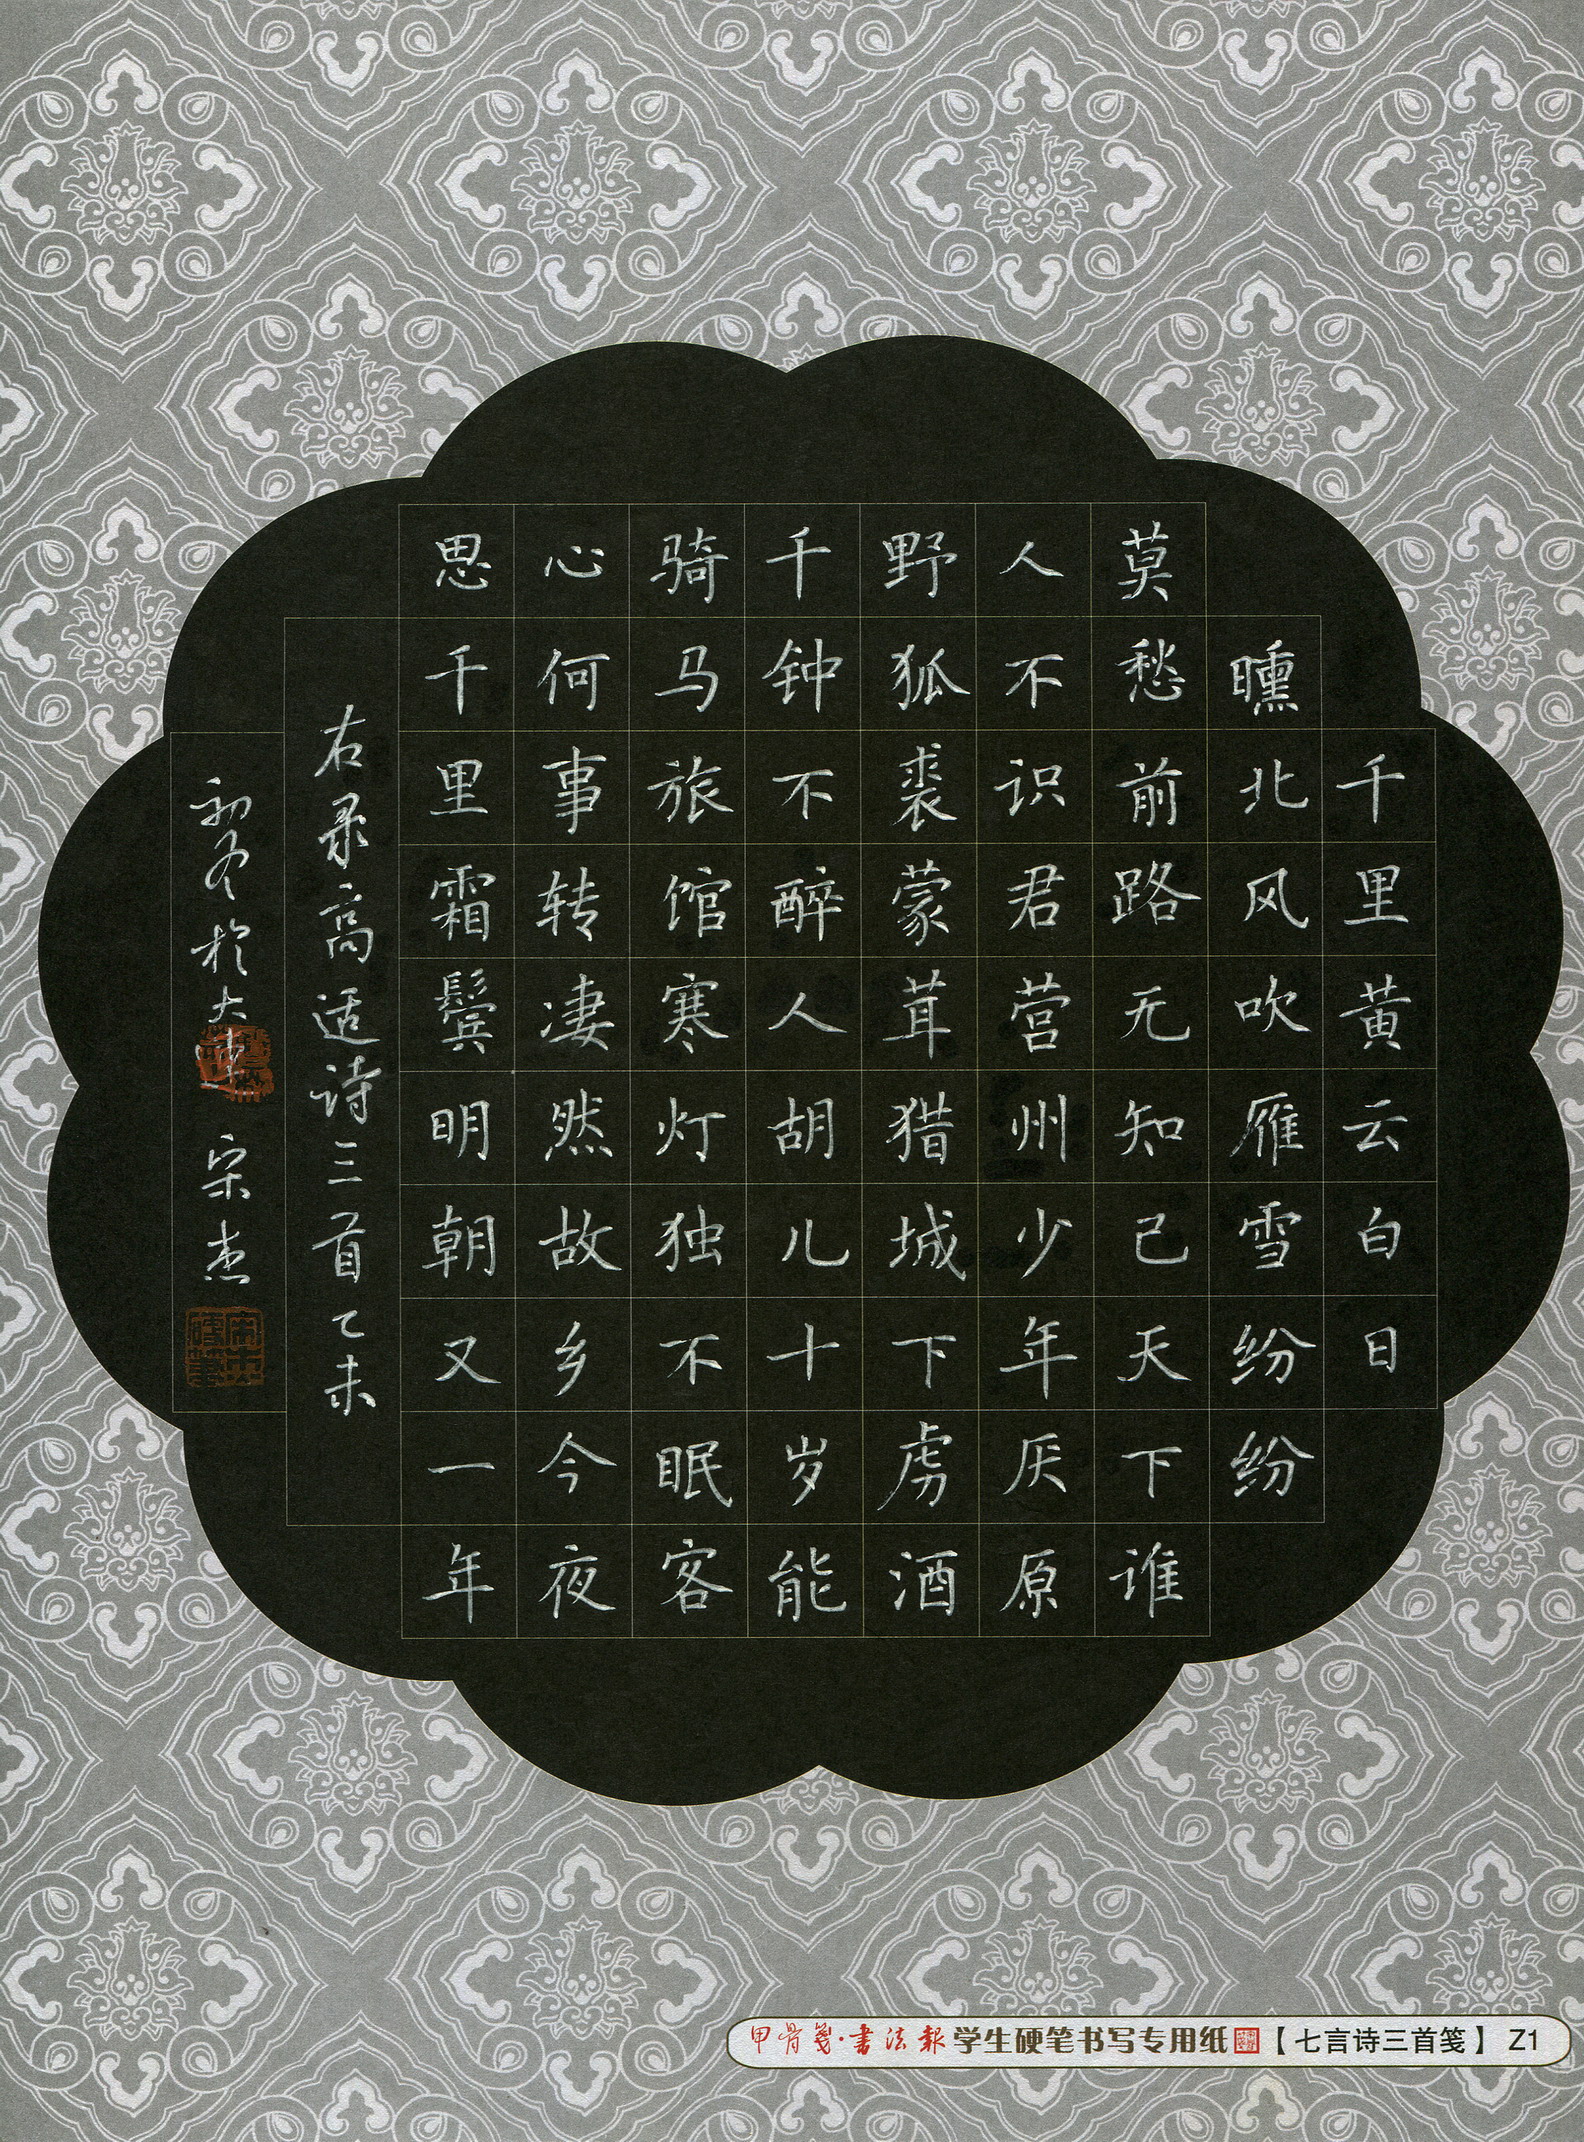 千里黄云白日
曛北风吹雁雪纷纷
莫愁前路无知己天下谁
人不识君营州少年厌原
野狐裘蒙茸猎城下虏酒
千钟不醉人胡儿十岁能
骑马旅馆寒灯独不眠客
心何事转凄然故乡今夜
思千里霜鬓明朝又一年
右录高适诗三首乙未
初冬於大 宋杰
甲骨箋·書法報学生硬笔书写专用纸【七言诗三首笺】 Z1